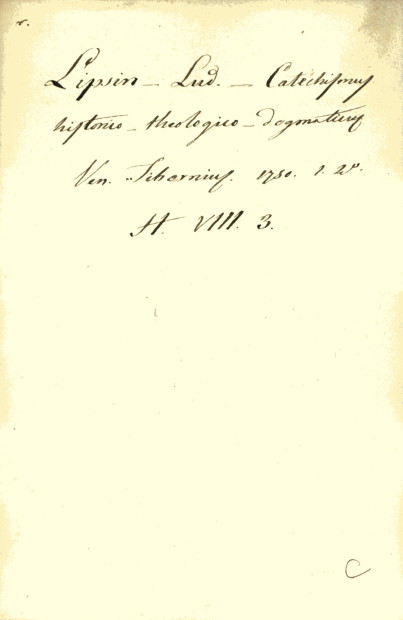 Lipsin – Lud. – Catechismus
historico – theologico – dogmaticus
Ven. Tibernius. 1750. 1. 2º.
H. VIII. 3.
C